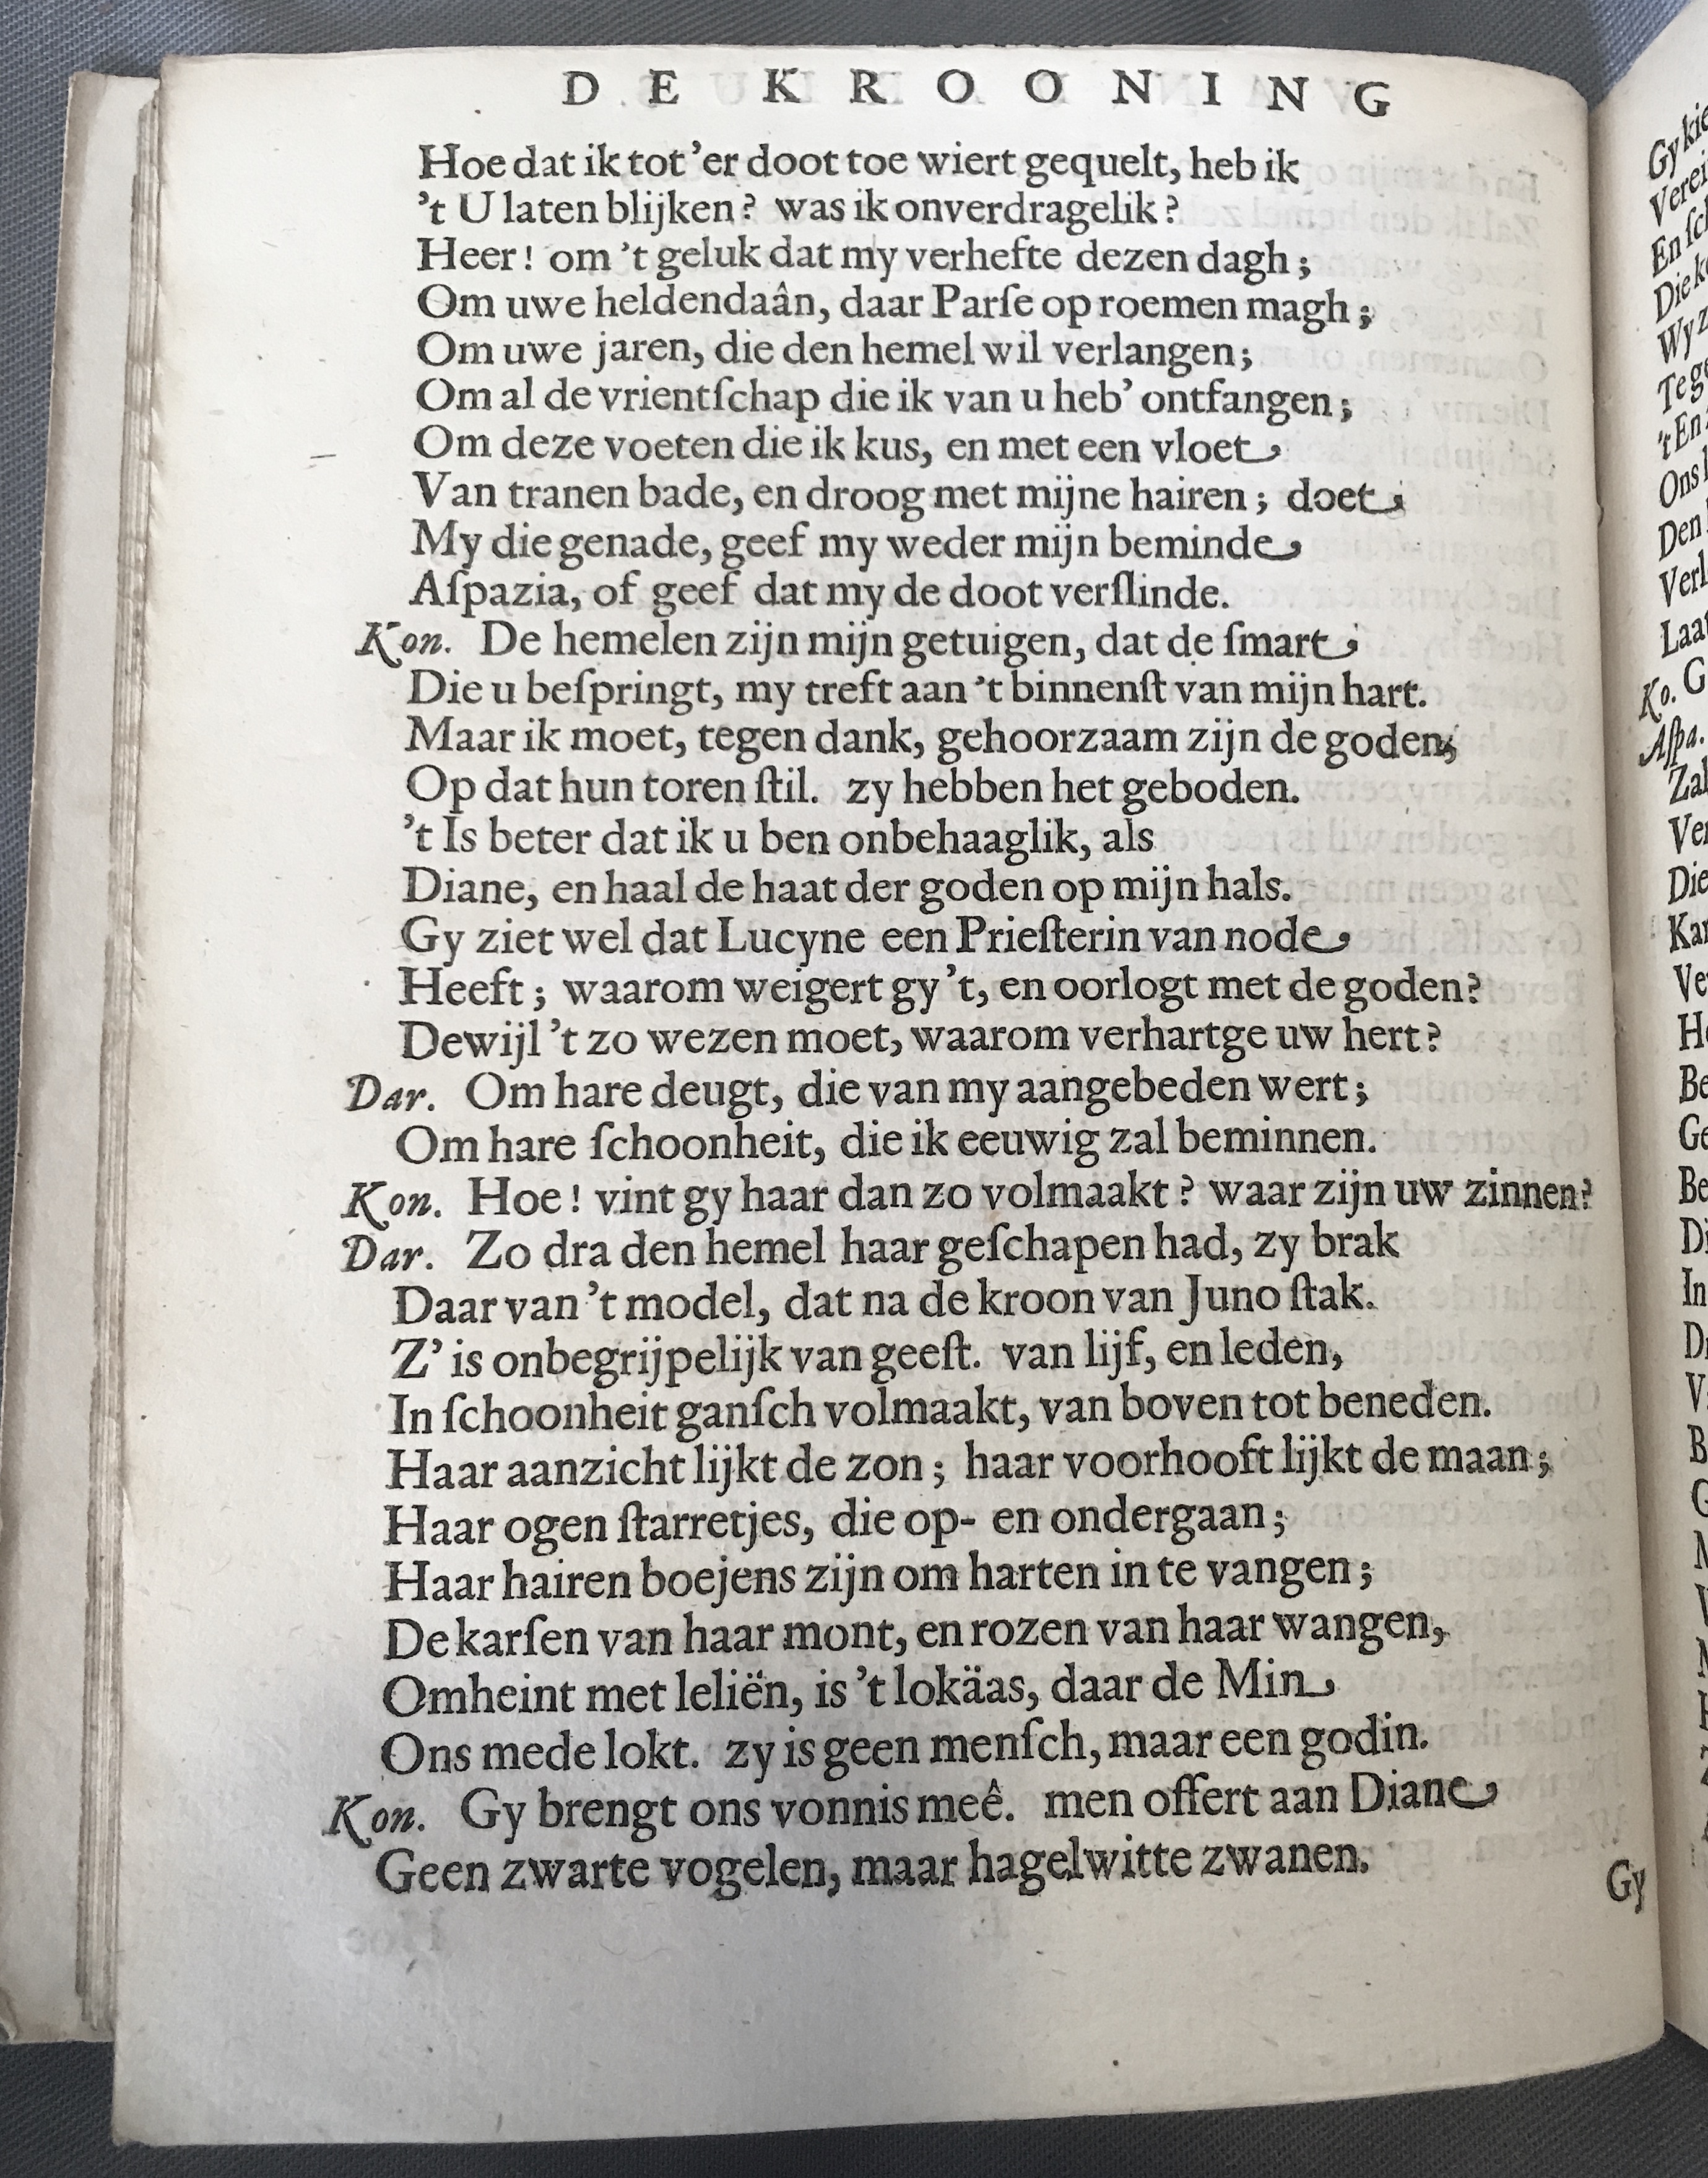 DE KROONING
Hoe dat ik tot 'er doot toe wiert gequelt, heb ik
't U laten blijken? was ik onverdragelik?
Heer! om 't geluk dat my verhefte dezen dagh;
Om uwe heldendaân, daar Parſe op roemen magh;
Om uwe jaren, die den hemel wil verlangen;
Om al de vrientſchap die ik van u heb' ontfangen;
Om deze voeten die ik kus, en met een vloet
Van tranen bade, en droog met mijne hairen; doet
My die genade, geef my weder mijn beminde
Aſpazia, of geef dat my de doot verſlinde.
Kon. De hemelen zijn mijn getuigen, dat de ſmart
Die u beſpringt, my treft aan 't binnenſt van mijn hart.
Maar ik moet, tegen dank, gehoorzaam zijn de goden,
Op dat hun toren ſtil. zy hebben het geboden.
't Is beter dat ik u ben onbehaaglik, als
Diane, en haal de haat der goden op mijn hals.
Gy ziet wel dat Lucyne een Prieſterin van node
Heeft; waarom weigert gy 't, en oorlogt met de goden?
Dewijl 't zo wezen moet, waarom verhartge uw hert?
Dar. Om hare deugt, die van my aangebeden wert;
Om hare ſchoonheit, die ik eeuwig zal beminnen.
Kon. Hoe! vint gy haar dan zo volmaakt? waar zijn uw zinnen?
Dar. Zo dra den hemel haar geſchapen had, zy brak
Daar van 't model, dat na de kroon van Juno ſtak.
Z' is onbegrijpelijk van geeſt. van lijf, en leden,
In ſchoonheit ganſch volmaakt, van boven tot beneden.
Haar aanzicht lijkt de zon; haar voorhooft lijkt de maan;
Haar ogen ſtarretjes, die op- en ondergaan;
Haar hairen boejens zijn om harten in te vangen;
De karſen van haar mont, en rozen van haar wangen,
Omheint met leliën, is 't lokäas, daar de Min
Ons mede lokt. zy is geen menſch, maar een godin.
Kon. Gy brengt ons vonnis meê. men offert aan Diane
Geen zwarte vogelen, maar hagelwitte zwanen.
Gy